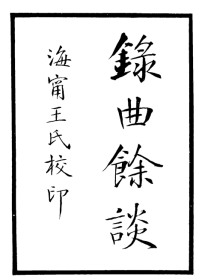 錄曲餘談
海甯王氏校印